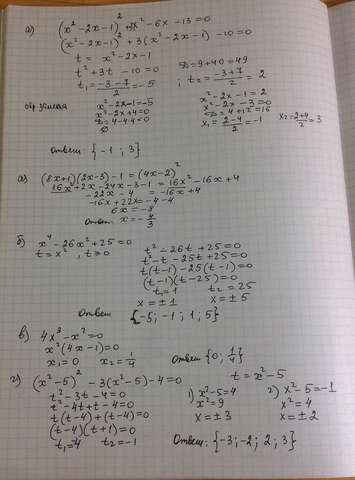 д) (x² - 2x - 1)² + 3x² - 6x - 13 = 0
(x² - 2x - 1)² + 3(x² - 2x - 1) - 10 = 0
t = x² - 2x - 1
t² + 3t - 10 = 0 D = 9 + 40 = 49
t₁ = (-3 - 7)/2 = -5 ; t₂ = (-3 + 7)/2 = 2
x² - 2x - 1 = -5 x² - 2x - 1 = 2
x² - 2x + 4 = 0 x² - 2x - 3 = 0
D = 4 - 4·4 < 0 D = 4 + 12 = 16
∅ x₁ = (2 - 4)/2 = -1 x₂ = (2 + 4)/2 = 3
Ответ: {-1 ; 3}
а) (8x + 1)(2x - 3) - 1 = (4x - 2)²
16x² + 2x - 24x - 3 - 1 = 16x² - 16x + 4
-22x - 4 = -16x + 4
-16x + 22x = -4 - 4
6x = -8
Ответ: x = -4/3
б) x⁴ - 26x² + 25 = 0
t = x², t ⩾ 0 t² - 26t + 25 = 0
t² - t - 25t + 25 = 0
t(t - 1) - 25(t - 1) = 0
(t - 1)(t - 25) = 0
t₁ = 1 t₂ = 25
x = ±1 x = ±5
Ответ {-5; -1; 1; 5}
в) 4x³ - x² = 0
x²(4x - 1) = 0
x₁ = 0 x₂ = 1/4 Ответ {0; 1/4}
г) (x² - 5)² - 3(x² - 5) - 4 = 0 t = x² - 5
t² - 3t - 4 = 0 1) x² - 5 = 4 2) x² - 5 = -1
t² - 4t + t - 4 = 0 x² = 9 x² = 4
t(t - 4) + (t - 4) = 0 x = ±3 x = ±2
(t - 4)(t + 1) = 0
t₁ = 4 t₂ = -1 Ответ: {-3; -2; 2; 3}